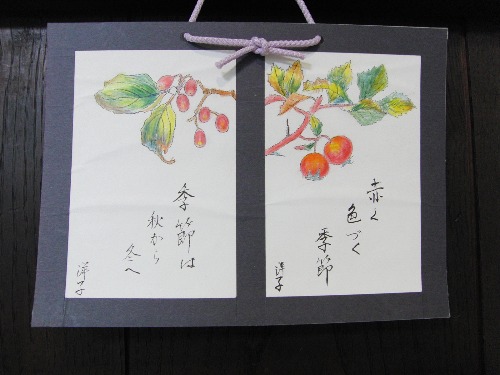 赤く
色づく
季節
洋子
季節は
秋から
冬へ
洋子